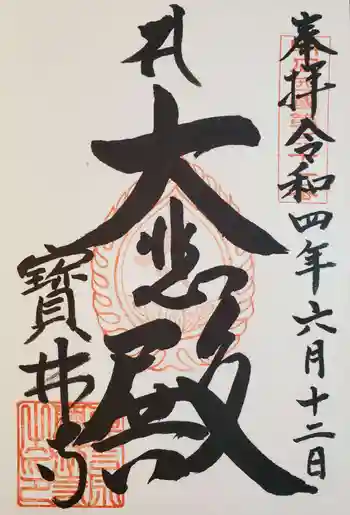 奉拝 令和四年六月十二日
大悲殿
寶林寺